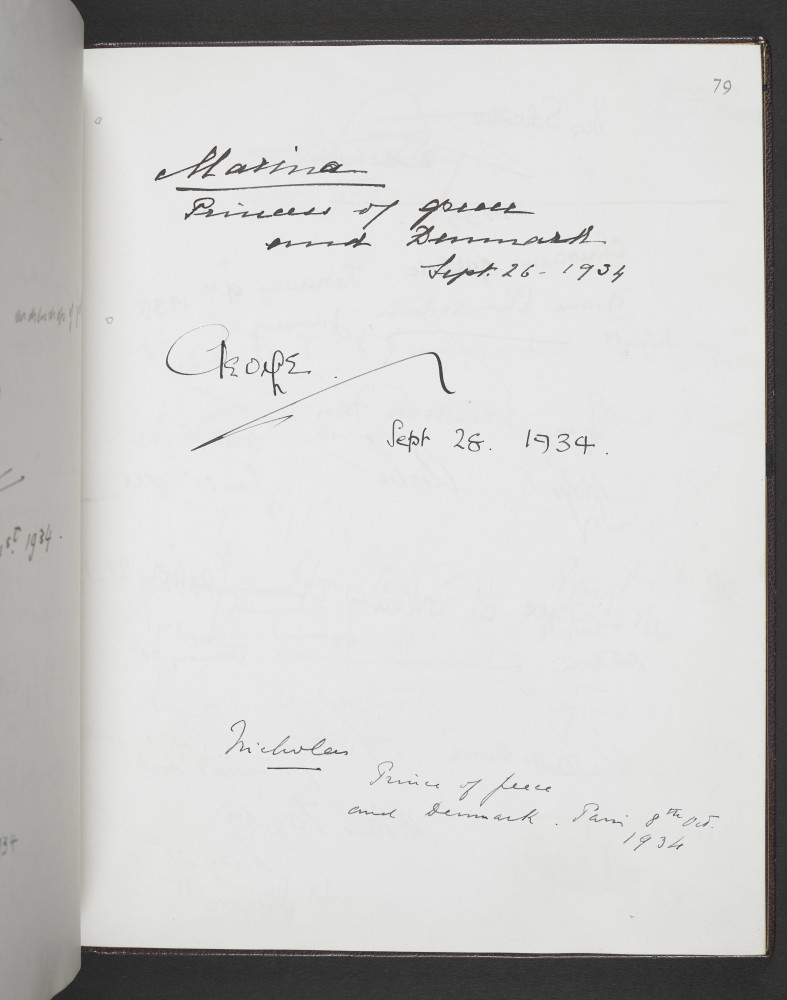 79
Marina
Princess of Greece
and Denmark
Sept. 26 - 1934
George.
Sept 28. 1934.
Nicholas
Prince of Greece
and Denmark. Paris 8th Oct.
1934
st 1934.
934